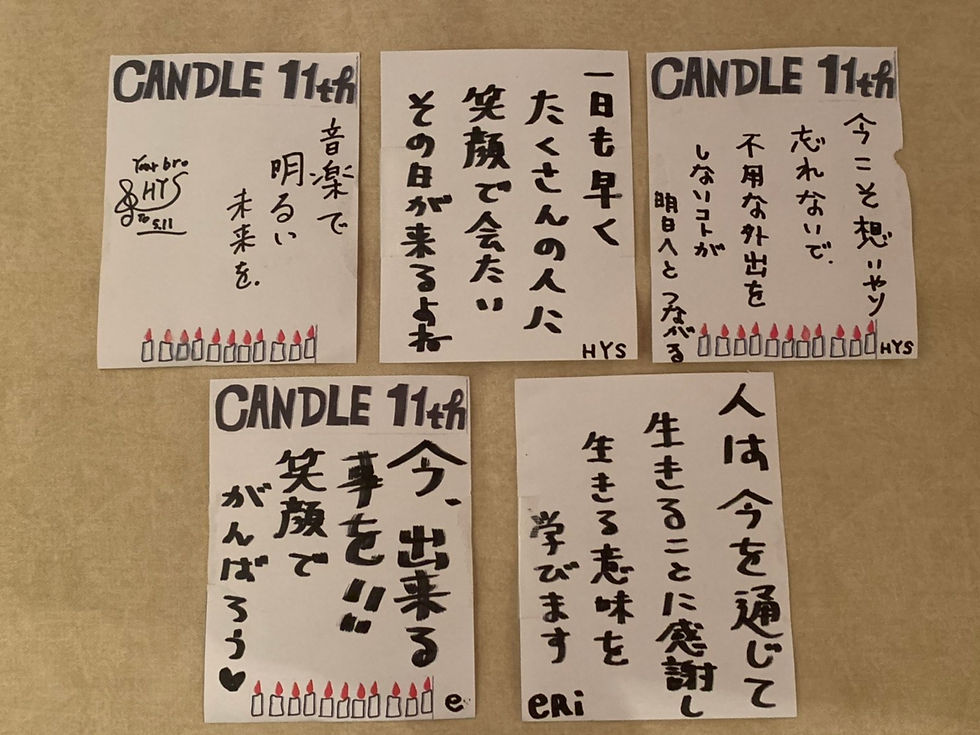 CANDLE 11th
音楽で
明るい
未来を.
Your bro
HYS
To 5.11
一日も早く
たくさんの人に
笑顔で会たい
その日が来るよね
HYS
CANDLE 11th
今こそ想いやり
忘れないで.
不用な外出を
しないコトが
明日へとつながる
HYS
CANDLE 11th
今、出来る
事を!!
笑顔で
がんばろう♥
e
人は今を通じて
生きることに感謝し
生きる意味を
学びます
eRi